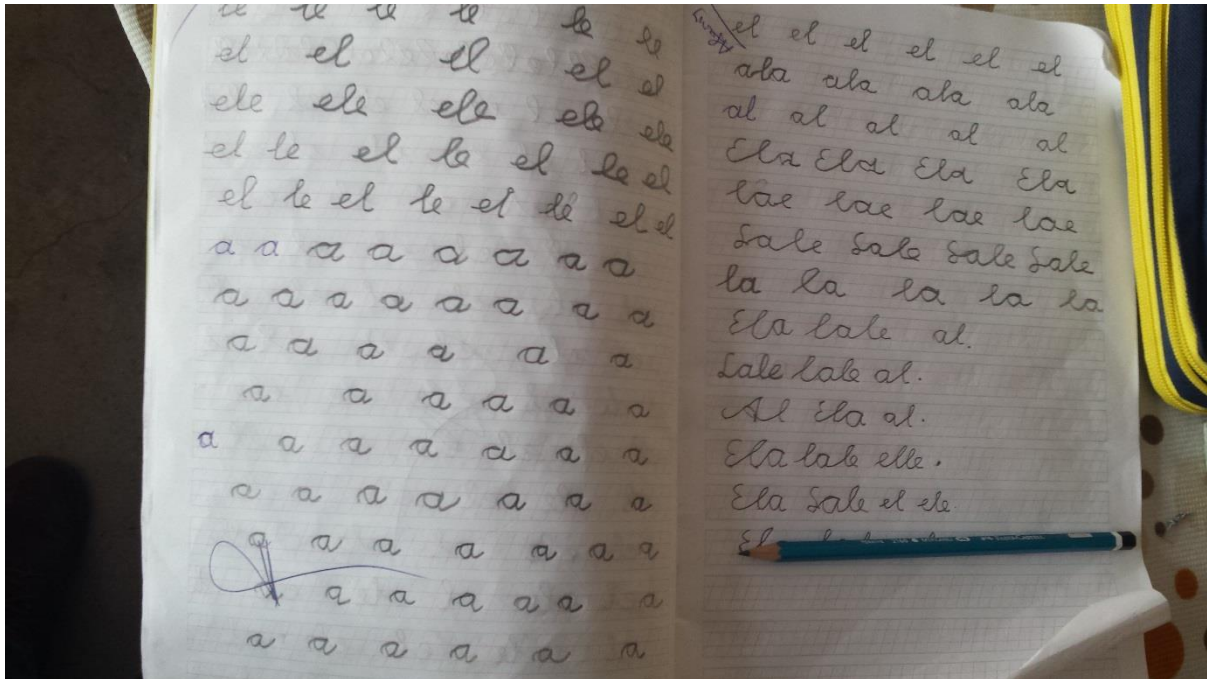 le le le le le le
el el el el el
ele ele ele ele ele
el le el le el le el
el le el le el le el el
a a a a a a a a
a a a a a a a a
a a a a a a
a a a a a a
a a a a a a a
a a a a a a a
a a a a a a a
a a a a a a
a a a a a a
el el el el el el
ala ala ala ala
al al al al al
Ela Ela Ela Ela
lae lae lae lae
Lale Lale Lale Lale
la la la la la
Ela lale al.
Lale lale al.
Al Ela al.
Ela lale elle.
Ela Lale el ele